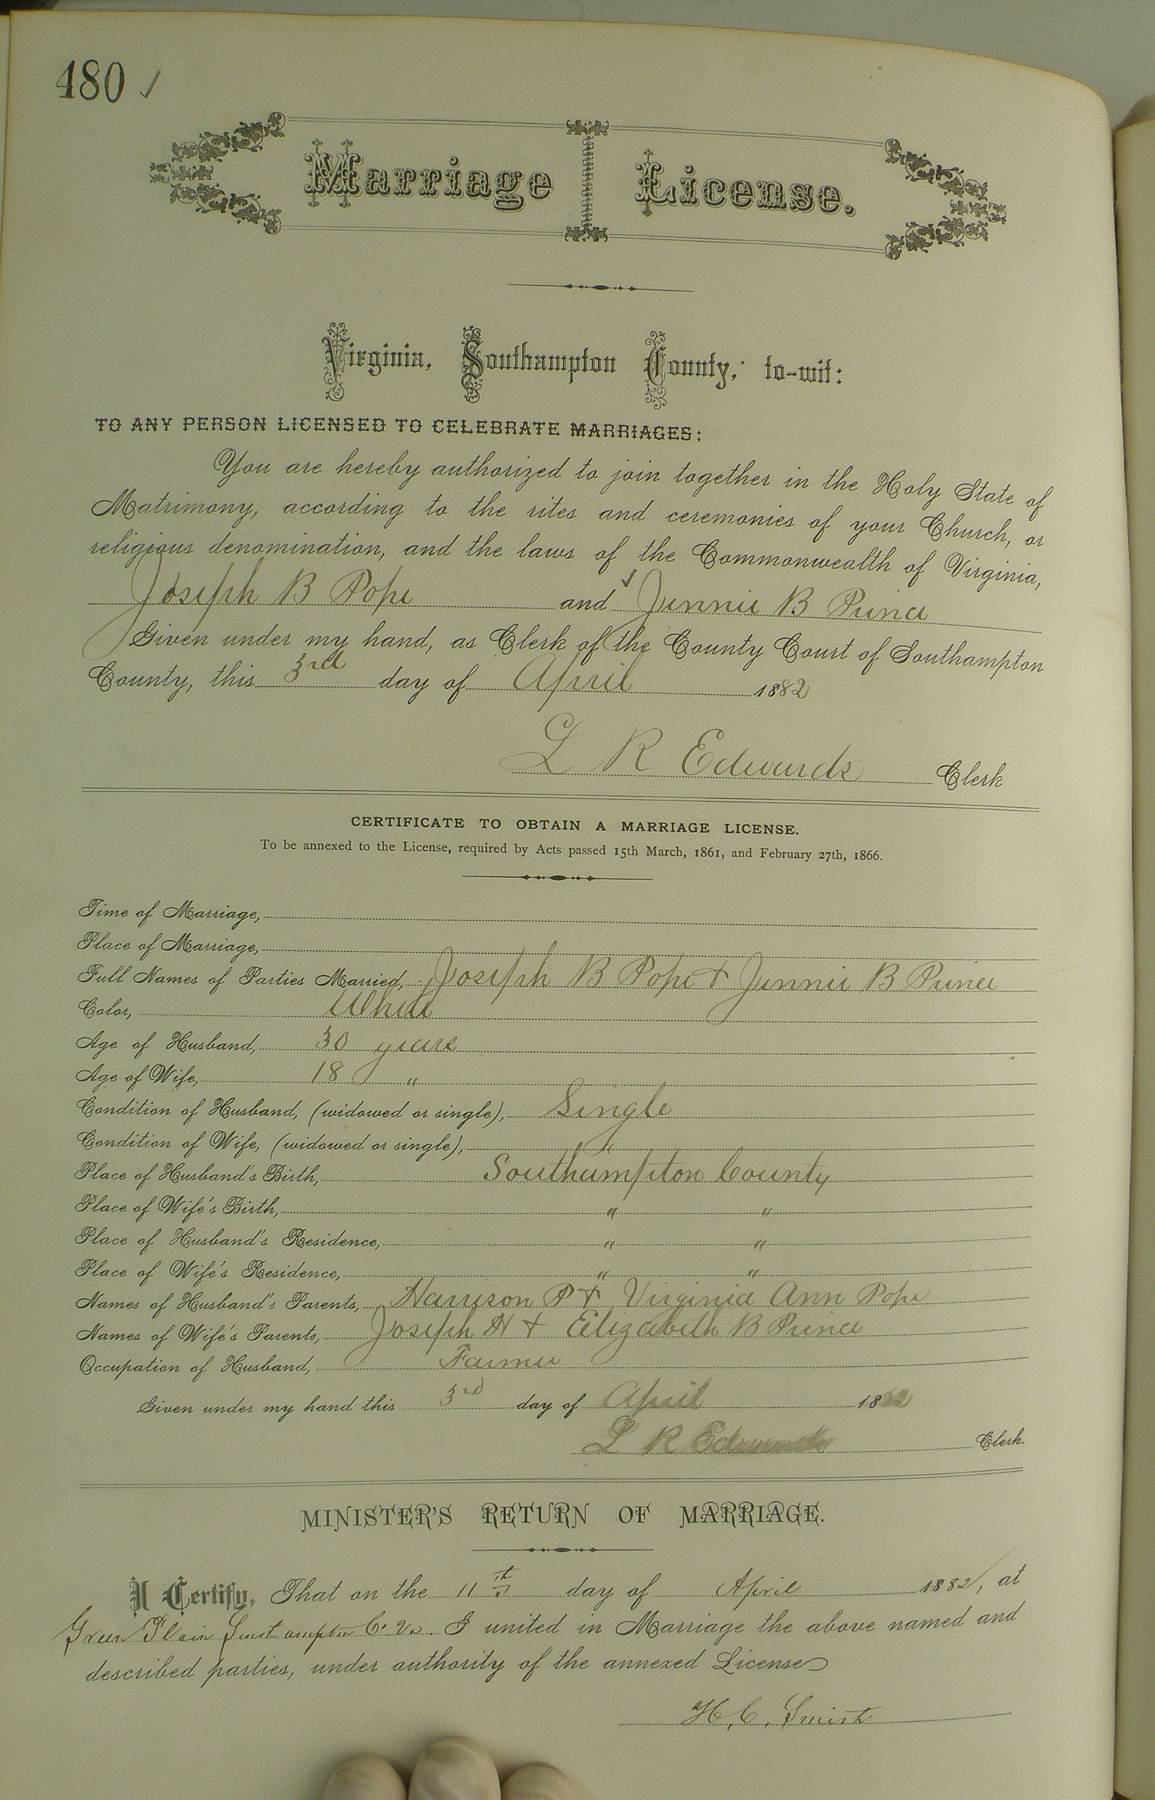 480 ✓
Marriage License.
Virginia, Southampton County, to-wit:
TO ANY PERSON LICENSED TO CELEBRATE MARRIAGES:
You are hereby authorized to join together in the Holy State of
Matrimony, according to the rites and ceremonies of your Church, or
religious denomination, and the laws of the Commonwealth of Virginia,
Joseph B Pope and ✓ Jennie B Prince
Given under my hand, as Clerk of the County Court of Southampton
County, this 3rd day of April 1882
L R Edwards Clerk
CERTIFICATE TO OBTAIN A MARRIAGE LICENSE.
To be annexed to the License, required by Acts passed 15th March, 1861, and February 27th, 1866.
Time of Marriage,
Place of Marriage,
Full Names of Parties Married, Joseph B Pope + Jennie B Prince
Color, White
Age of Husband, 30 years
Age of Wife, 18 "
Condition of Husband, (widowed or single), Single
Condition of Wife, (widowed or single), "
Place of Husband's Birth, Southampton County
Place of Wife's Birth, " "
Place of Husband's Residence, " "
Place of Wife's Residence, " "
Names of Husband's Parents, Harrison P + Virginia Ann Pope
Names of Wife's Parents, Joseph H + Elizabeth B Prince
Occupation of Husband, Farmer
Given under my hand this 3rd day of April 1882
L R Edwards Clerk.
MINISTER'S RETURN OF MARRIAGE.
I Certify, That on the 11th day of April 1882, at
Green Plain Southampton Co. Va. I united in Marriage the above named and
described parties, under authority of the annexed License
H. C.